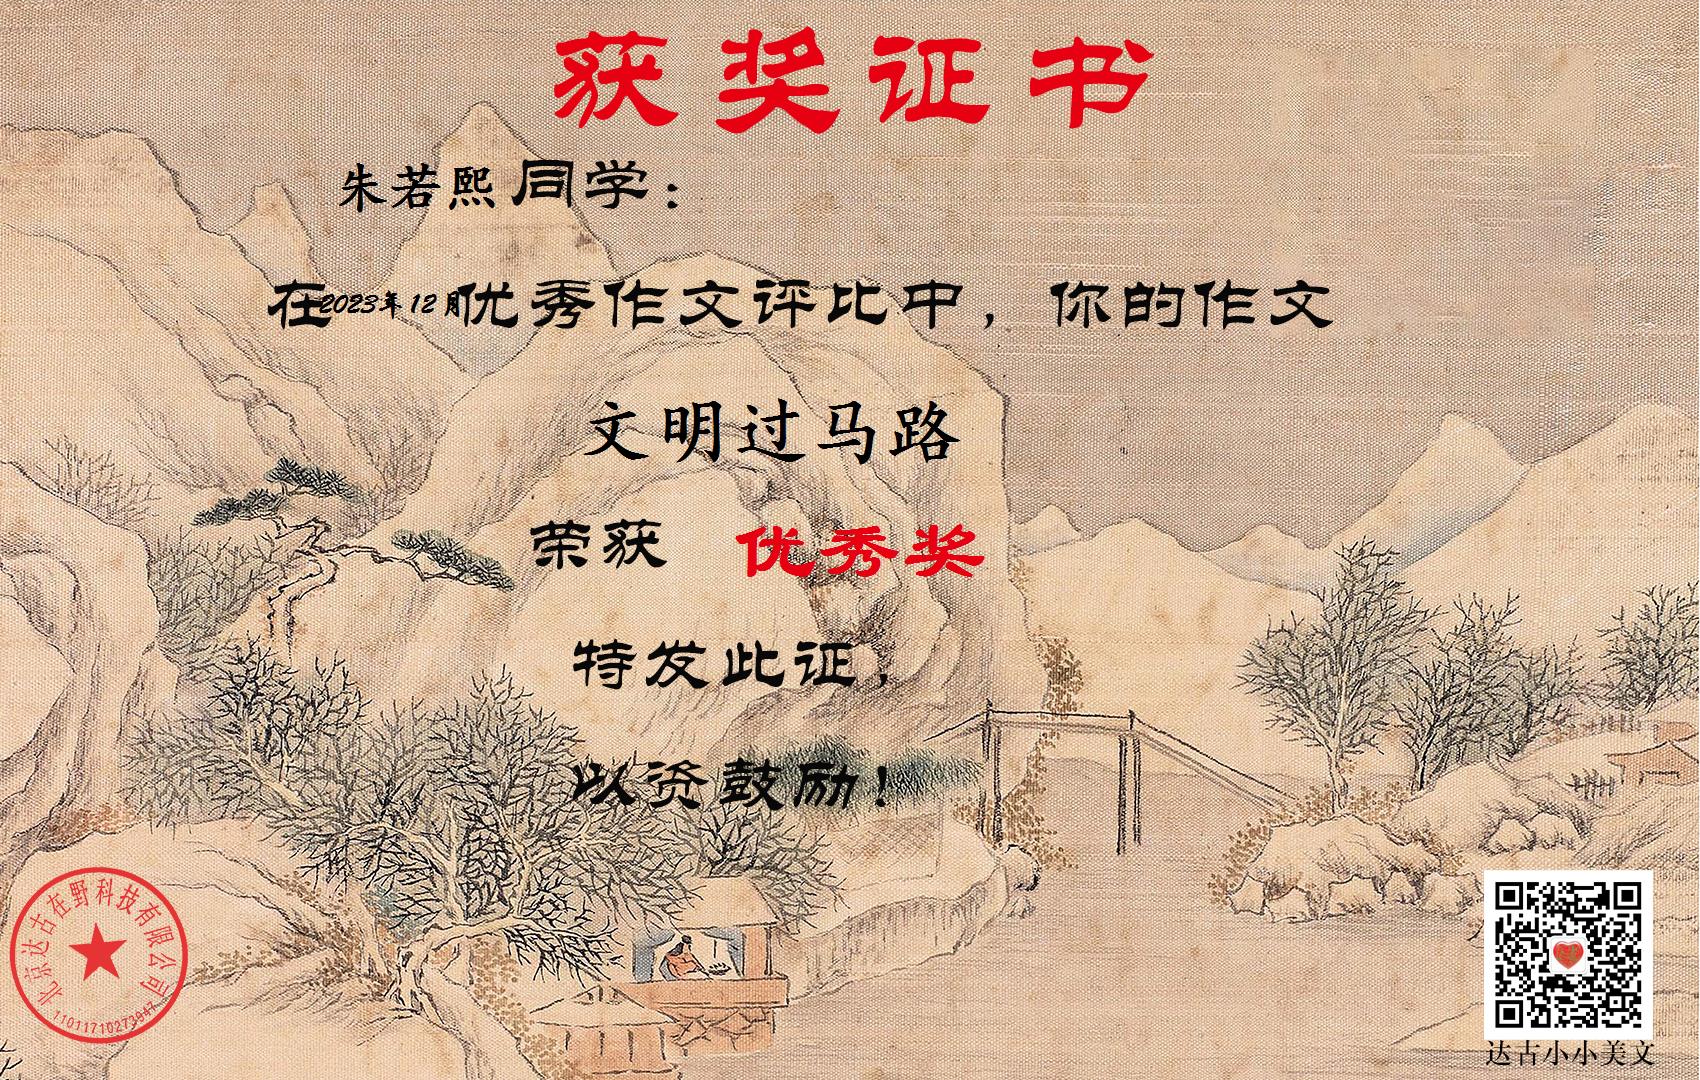 获奖证书
朱若熙同学：
在2023年12月优秀作文评比中，你的作文
文明过马路
荣获 优秀奖
特发此证，
以资鼓励！
北京达古在野科技有限公司
11011710273947
达古小小美文